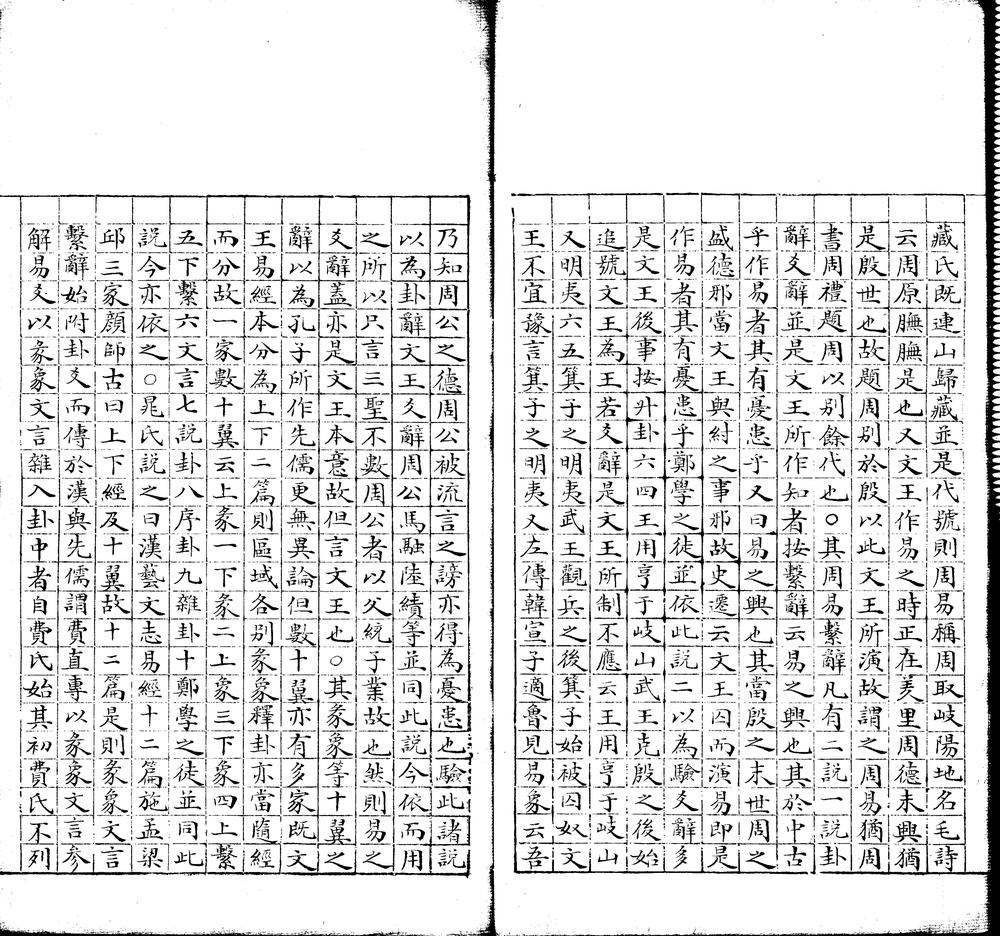 藏氏既連山歸藏並是代號則周易稱周取岐陽地名毛詩
云周原膴膴是也又文王作易之時正在羑里周德未興猶
是殷世也故題周别於殷以此文王所演故謂之周易猶周
書周禮題周以别餘代也○其周易繫辭凡有二說一說卦
辭爻辭並是文王所作知者按繫辭云易之興也其於中古
乎作易者其有憂患乎又曰易之興也其當殷之末世周之
盛德邪當文王與紂之事邪故史遷云文王囚而演易即是
作易者其有憂患乎鄭學之徒並依此說二以為驗爻辭多
是文王後事按升卦六四王用亨于岐山武王克殷之後始
追號文王為王若爻辭是文王所制不應云王用亨于岐山
又明夷六五箕子之明夷武王觀兵之後箕子始被囚奴文
王不宜豫言箕子之明夷又左傳韓宣子適魯見易象云吾
乃知周公之德周公被流言之謗亦得為憂患也驗此諸說
以為卦辭文王爻辭周公馬融陸績等並同此說今依而用
之所以只言三聖不數周公者以父統子業故也然則易之
爻辭蓋亦是文王本意故但言文王也○其彖象等十翼之
辭以為孔子所作先儒更無異論但數十翼亦有多家既文
王易經本分為上下二篇則區域各别彖象釋卦亦當隨經
而分故一家數十翼云上彖一下彖二上象三下象四上繫
五下繫六文言七說卦八序卦九雜卦十鄭學之徒並同此
說今亦依之○晁氏說之曰漢藝文志易經十二篇施孟梁
邱三家顔師古曰上下經及十翼故十二篇是則彖象文言
繫辭始附卦爻而傳於漢與先儒謂費直專以彖象文言參
解易爻以彖象文言雜入卦中者自費氏始其初費氏不列